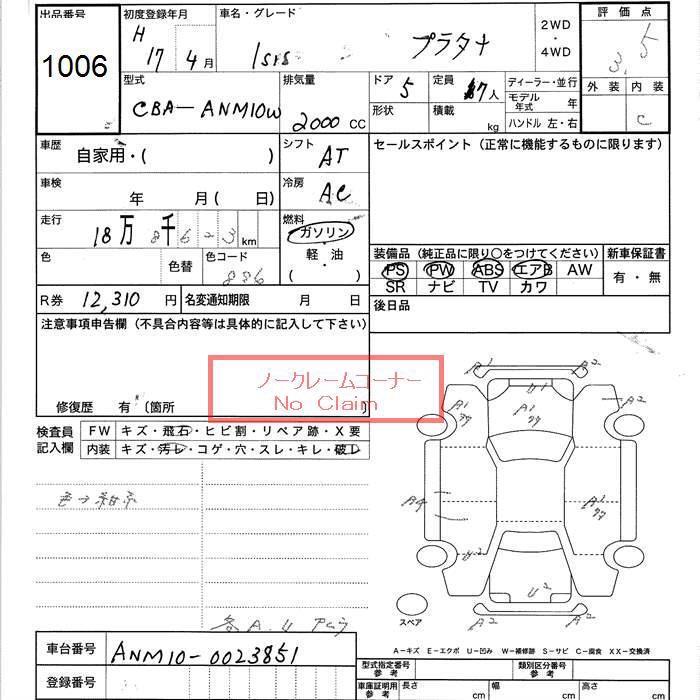 出品番号 初度登録年月 車名・グレード 2WD・4WD 評価点
1006 H 17年 4月 プラタナ 3.5
外装 内装 C
型式 排気量 ドア 5 定員 7人 ディーラー・並行
CBA-ANM10W 2000 CC 形状 積載 kg モデル年式 年
ハンドル 左・右
車歴 自家用・( ) シフト AT セールスポイント (正常に機能するものに限ります)
車検 年 月 ( 日) 冷房 AC
走行 18万 8千 623 km 燃料 ガソリン・軽・油 ( )
色 色替 色コード
装備品 (純正品に限り○をつけてください) 新車保証書
PS PW ABS エアB AW 有・無
SR ナビ TV カワ
R券 12,310 円 名変通知期限 月 日 後日品
注意事項申告欄 (不具合内容等は具体的に記入して下さい)
ノークレームコーナー
No Claim
修復歴 有 (箇所 )
検査員記入欄 FW キズ・飛石・ヒビ割・リペア跡・X要
内装 キズ・汚レ・コゲ・穴・スレ・キレ・破レ
A1 A2
U1
A1 A1 A2
A4 A1
U2
U2
A2 A2
スペア
A-キズ E-エクボ U-凹み W-補修跡 S-サビ C-腐食 XX-交換済
車台番号 ANM10-0023851 型式指定番号 参考 類別区分番号 参考
登録番号 車庫証明用 参考 長さ cm 幅 cm 高さ cm